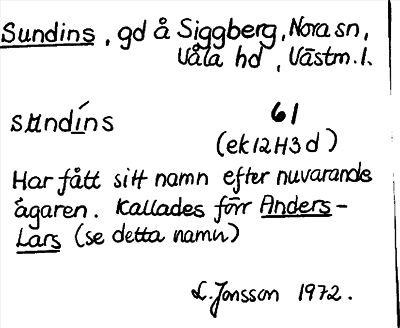 Sundins, gd å Siggberg, Nora sn,
Våla hd, Västm. l.
sʉndíns 61
(ek 12H3d)
Har fått sitt namn efter nuvarande
ägaren. Kallades förr Anders-
Lars (se detta namn)
L. Jonsson 1972.